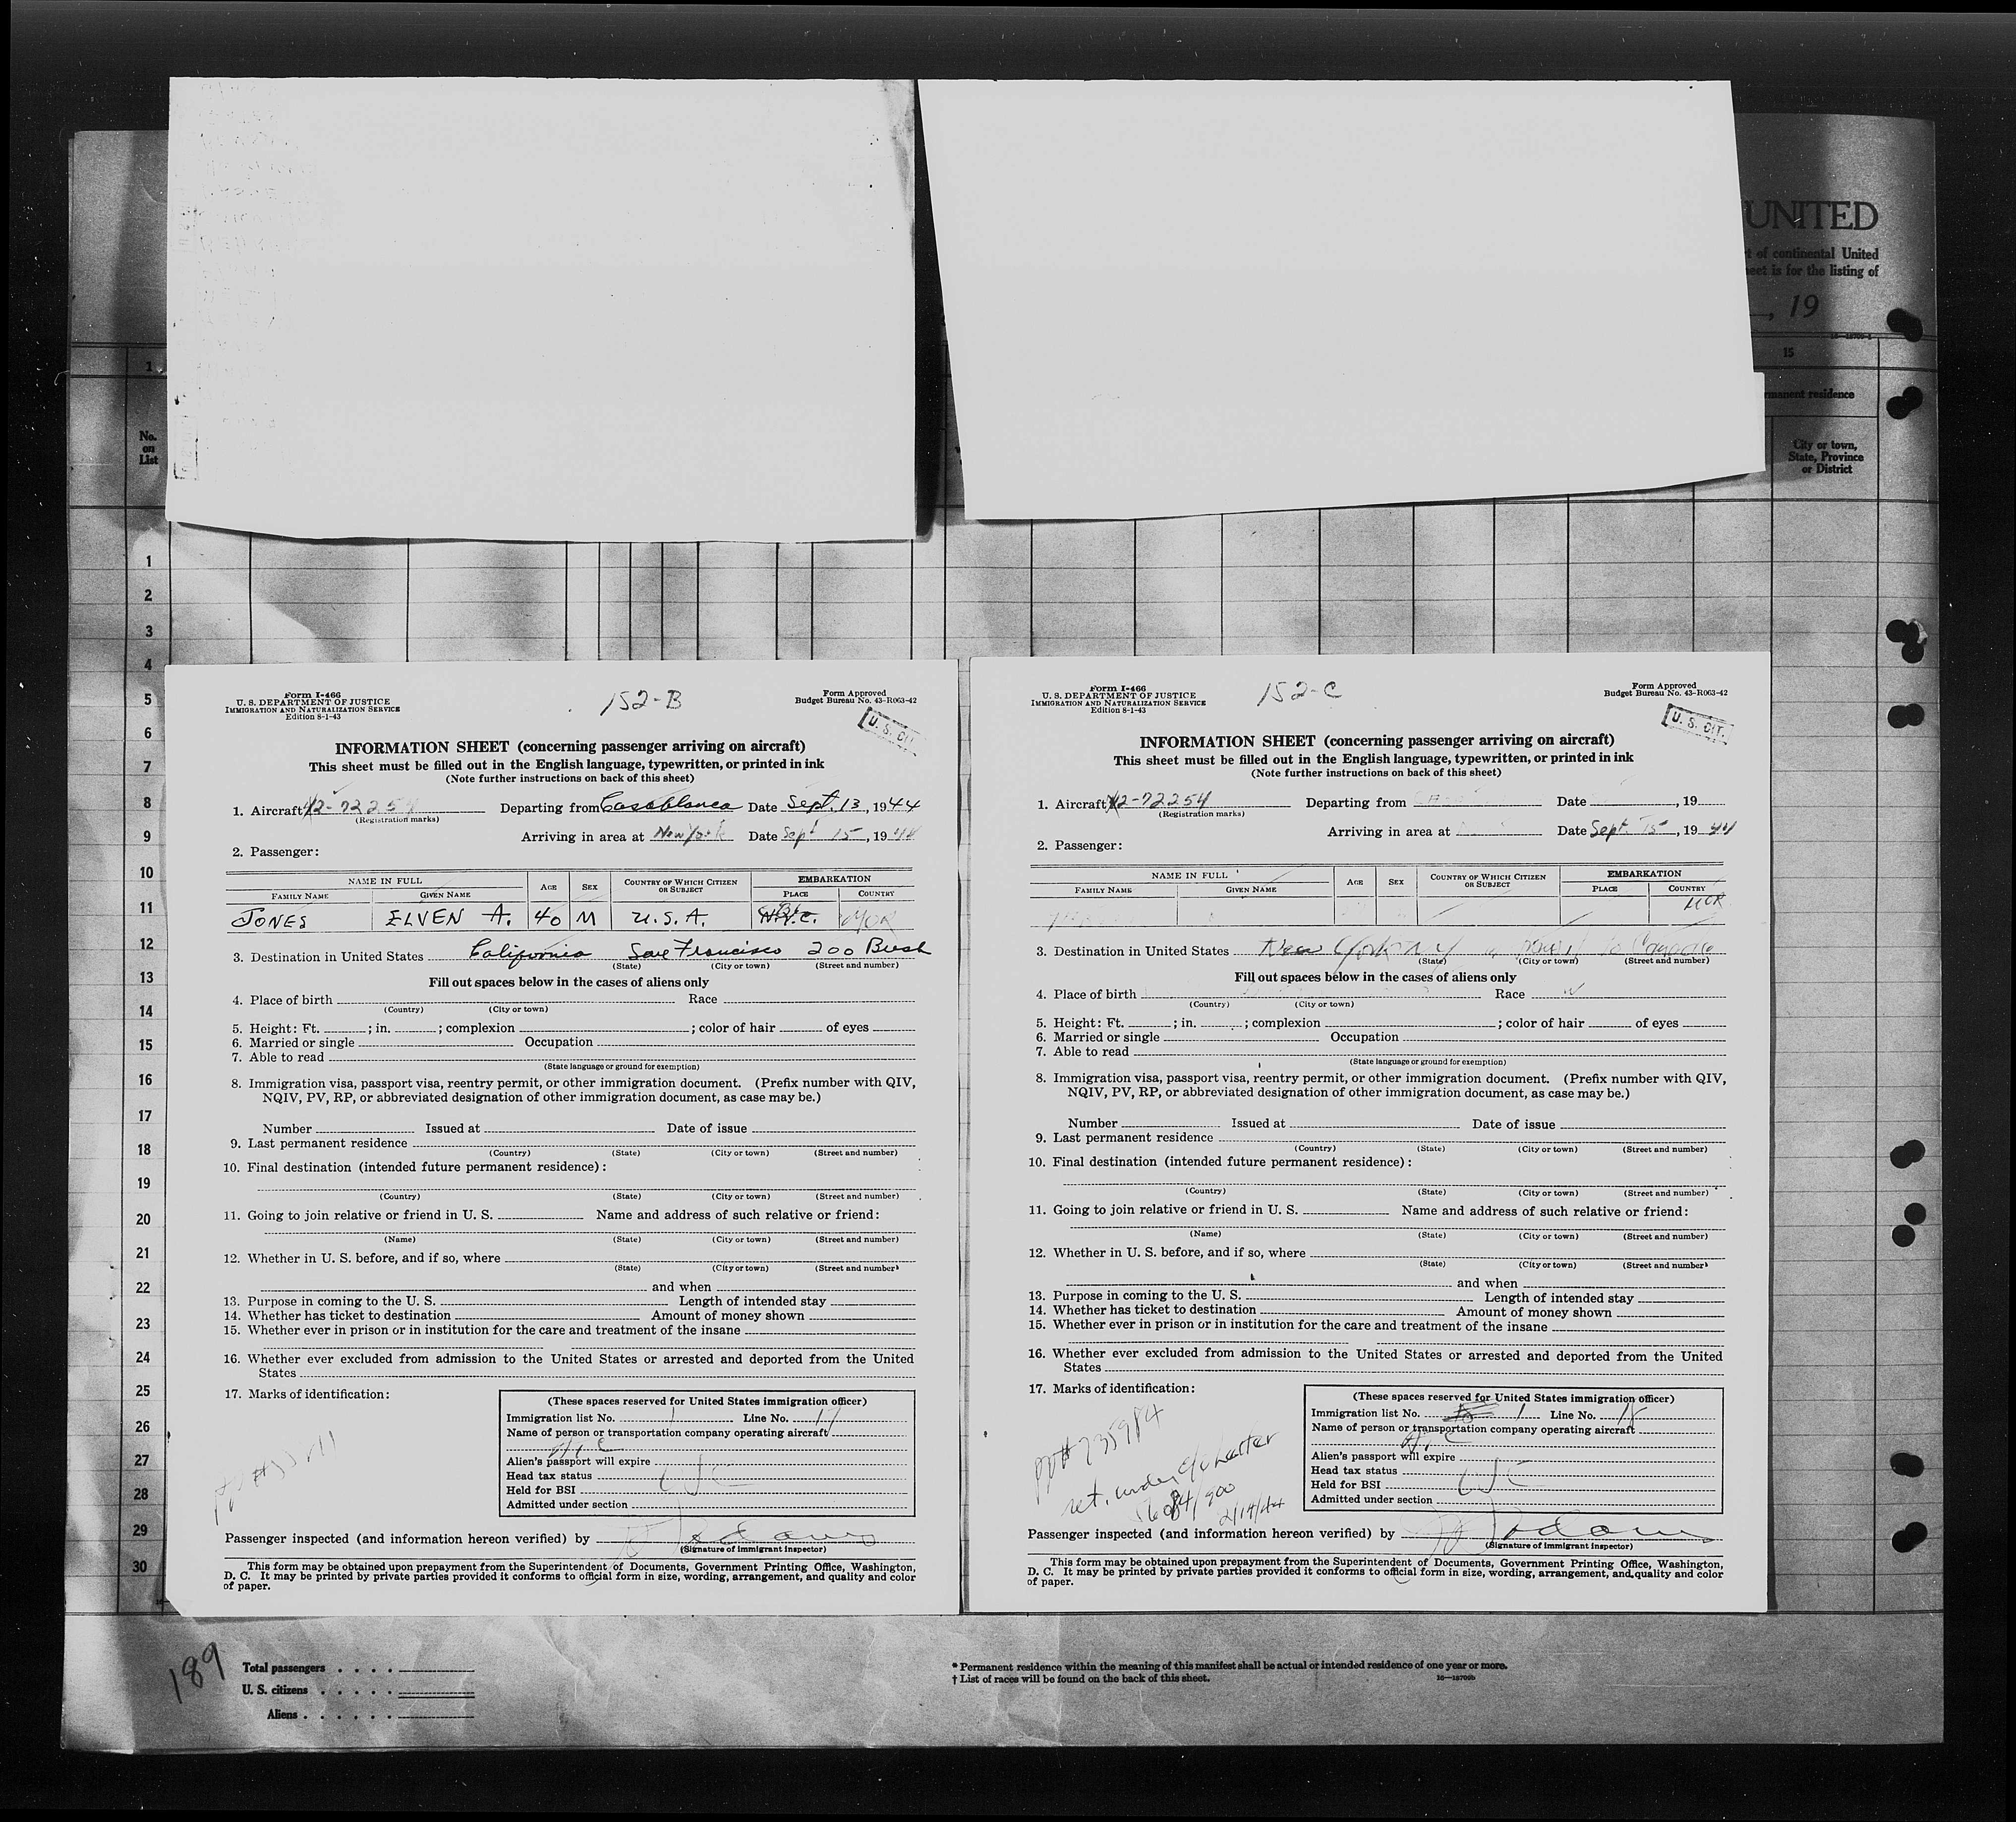 UNITED
t of continental United
eet is for the listing of
, 19
15
manent residence
City or town,
State, Province
or District
1
No.
on
List
1
2
3
4
5
6
7
8
9
10
11
12
13
14
15
16
17
18
19
20
21
22
23
24
25
26
27
28
29
30
Form I-466
U. S. DEPARTMENT OF JUSTICE
IMMIGRATION AND NATURALIZATION SERVICE
Edition 8-1-43
152-B
Form Approved
Budget Bureau No. 43-R063-42
U. S. CIT.
INFORMATION SHEET (concerning passenger arriving on aircraft)
This sheet must be filled out in the English language, typewritten, or printed in ink
(Note further instructions on back of this sheet)
1. Aircraft 42-72254 Departing from Casablanca Date Sept. 13, 1944
(Registration marks)
Arriving in area at New York Date Sept 15, 1944
2. Passenger:
NAME IN FULL AGE SEX COUNTRY OF WHICH CITIZEN OR SUBJECT EMBARKATION
FAMILY NAME GIVEN NAME PLACE COUNTRY
JONES ELVEN A. 40 M U.S.A. N.Y.C. MOR
3. Destination in United States California San Francisco 200 Bush
(State) (City or town) (Street and number)
Fill out spaces below in the cases of aliens only
4. Place of birth Race
(Country) (City or town)
5. Height: Ft. ; in. ; complexion ; color of hair of eyes
6. Married or single Occupation
7. Able to read
(State language or ground for exemption)
8. Immigration visa, passport visa, reentry permit, or other immigration document. (Prefix number with QIV,
NQIV, PV, RP, or abbreviated designation of other immigration document, as case may be.)
Number Issued at Date of issue
9. Last permanent residence
(Country) (State) (City or town) (Street and number)
10. Final destination (intended future permanent residence):
(Country) (State) (City or town) (Street and number)
11. Going to join relative or friend in U. S. Name and address of such relative or friend:
(Name) (State) (City or town) (Street and number)
12. Whether in U. S. before, and if so, where
(State) (City or town) (Street and number)
and when
13. Purpose in coming to the U. S. Length of intended stay
14. Whether has ticket to destination Amount of money shown
15. Whether ever in prison or in institution for the care and treatment of the insane
16. Whether ever excluded from admission to the United States or arrested and deported from the United
States
17. Marks of identification:
(These spaces reserved for United States immigration officer)
Immigration list No. 1 Line No. 17
Name of person or transportation company operating aircraft
Alien's passport will expire
Head tax status
Held for BSI
Admitted under section
Passenger inspected (and information hereon verified) by
(Signature of immigrant inspector)
This form may be obtained upon prepayment from the Superintendent of Documents, Government Printing Office, Washington,
D. C. It may be printed by private parties provided it conforms to official form in size, wording, arrangement, and quality and color
of paper.
Form I-466
U. S. DEPARTMENT OF JUSTICE
IMMIGRATION AND NATURALIZATION SERVICE
Edition 8-1-43
152-C
Form Approved
Budget Bureau No. 43-R063-42
U. S. CIT.
INFORMATION SHEET (concerning passenger arriving on aircraft)
This sheet must be filled out in the English language, typewritten, or printed in ink
(Note further instructions on back of this sheet)
1. Aircraft 42-72254 Departing from Date , 19
(Registration marks)
Arriving in area at Date Sept. 15, 1944
2. Passenger:
NAME IN FULL AGE SEX COUNTRY OF WHICH CITIZEN OR SUBJECT EMBARKATION
FAMILY NAME GIVEN NAME PLACE COUNTRY
MOR
3. Destination in United States New York N Y
(State) (City or town) (Street and number)
Fill out spaces below in the cases of aliens only
4. Place of birth Race W
(Country) (City or town)
5. Height: Ft. ; in. ; complexion ; color of hair of eyes
6. Married or single Occupation
7. Able to read
(State language or ground for exemption)
8. Immigration visa, passport visa, reentry permit, or other immigration document. (Prefix number with QIV,
NQIV, PV, RP, or abbreviated designation of other immigration document, as case may be.)
Number Issued at Date of issue
9. Last permanent residence
(Country) (State) (City or town) (Street and number)
10. Final destination (intended future permanent residence):
(Country) (State) (City or town) (Street and number)
11. Going to join relative or friend in U. S. Name and address of such relative or friend:
(Name) (State) (City or town) (Street and number)
12. Whether in U. S. before, and if so, where
(State) (City or town) (Street and number)
and when
13. Purpose in coming to the U. S. Length of intended stay
14. Whether has ticket to destination Amount of money shown
15. Whether ever in prison or in institution for the care and treatment of the insane
16. Whether ever excluded from admission to the United States or arrested and deported from the United
States
17. Marks of identification:
PPt #735984
ret. under c/o letter
5684/900
2/14/44
(These spaces reserved for United States immigration officer)
Immigration list No. 1 Line No. 18
Name of person or transportation company operating aircraft
Alien's passport will expire
Head tax status
Held for BSI
Admitted under section
Passenger inspected (and information hereon verified) by
(Signature of immigrant inspector)
This form may be obtained upon prepayment from the Superintendent of Documents, Government Printing Office, Washington,
D. C. It may be printed by private parties provided it conforms to official form in size, wording, arrangement, and quality and color
of paper.
189
Total passengers . . . .
U. S. citizens . . . . .
Aliens . . . . . .
* Permanent residence within the meaning of this manifest shall be actual or intended residence of one year or more.
† List of races will be found on the back of this sheet.